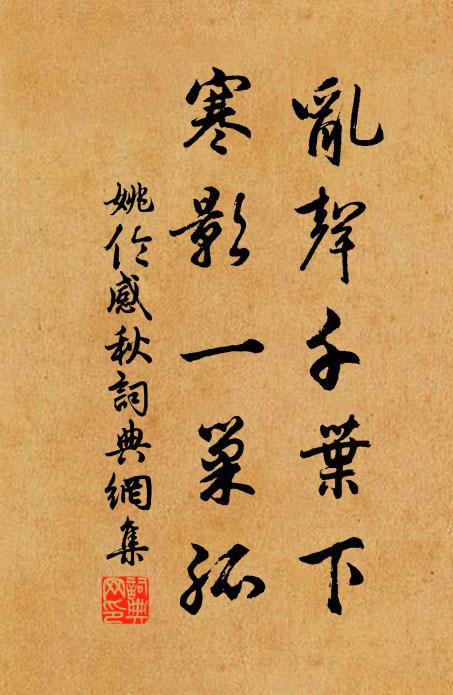 亂聲千葉下
寒影一巢孤
姚伦感秋詞典網集
詞典
网印